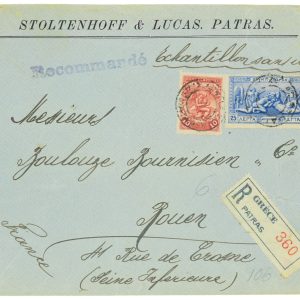 STOLTENHOFF & LUCAS. PATRAS.
Recommandé
Echantillon sans
25
Messieurs
Toulouze Fournisien " Cie
R GRÈCE
PATRAS
360
Rouen
France
Rue de
(Seine Inférieure)
106